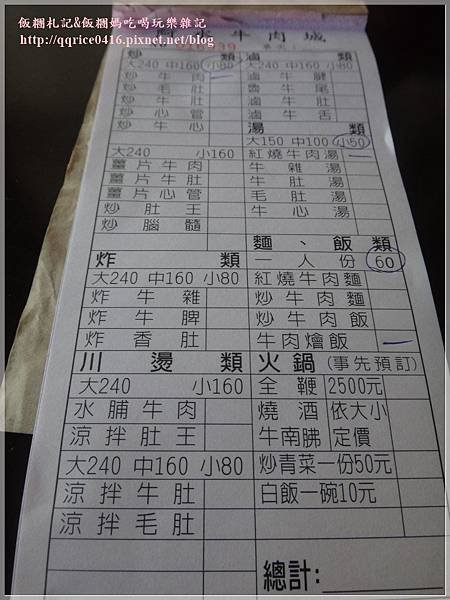 飯糰札記&飯糰媽吃喝玩樂雜記
http://qqrice0416.pixnet.net/blog
牛肉城
炒 類
大240 中160 小80
炒牛肉
炒毛肚
炒牛肚
炒心管
炒牛心
大240 小160
薑片牛肉
薑片牛肚
薑片心管
炒肚王
炒腦髓
炸 類
大240 中160 小80
炸牛雜
炸牛脾
炸香肚
川燙類
大240 小160
水脯牛肉
涼拌肚王
大240 中160 小80
涼拌牛肚
涼拌毛肚
滷 類
大240 中160 小80
滷牛腱
滷牛尾
滷牛肚
滷牛舌
湯 類
大150 中100 小50
紅燒牛肉湯
牛雜湯
牛肚湯
毛肚湯
牛心湯
麵、飯類
一人份 60
紅燒牛肉麵
炒牛肉麵
炒牛肉飯
牛肉燴飯
火鍋(事先預訂)
全鞭 2500元
燒酒 依大小
牛南胇 定價
炒青菜一份50元
白飯一碗10元
總計: